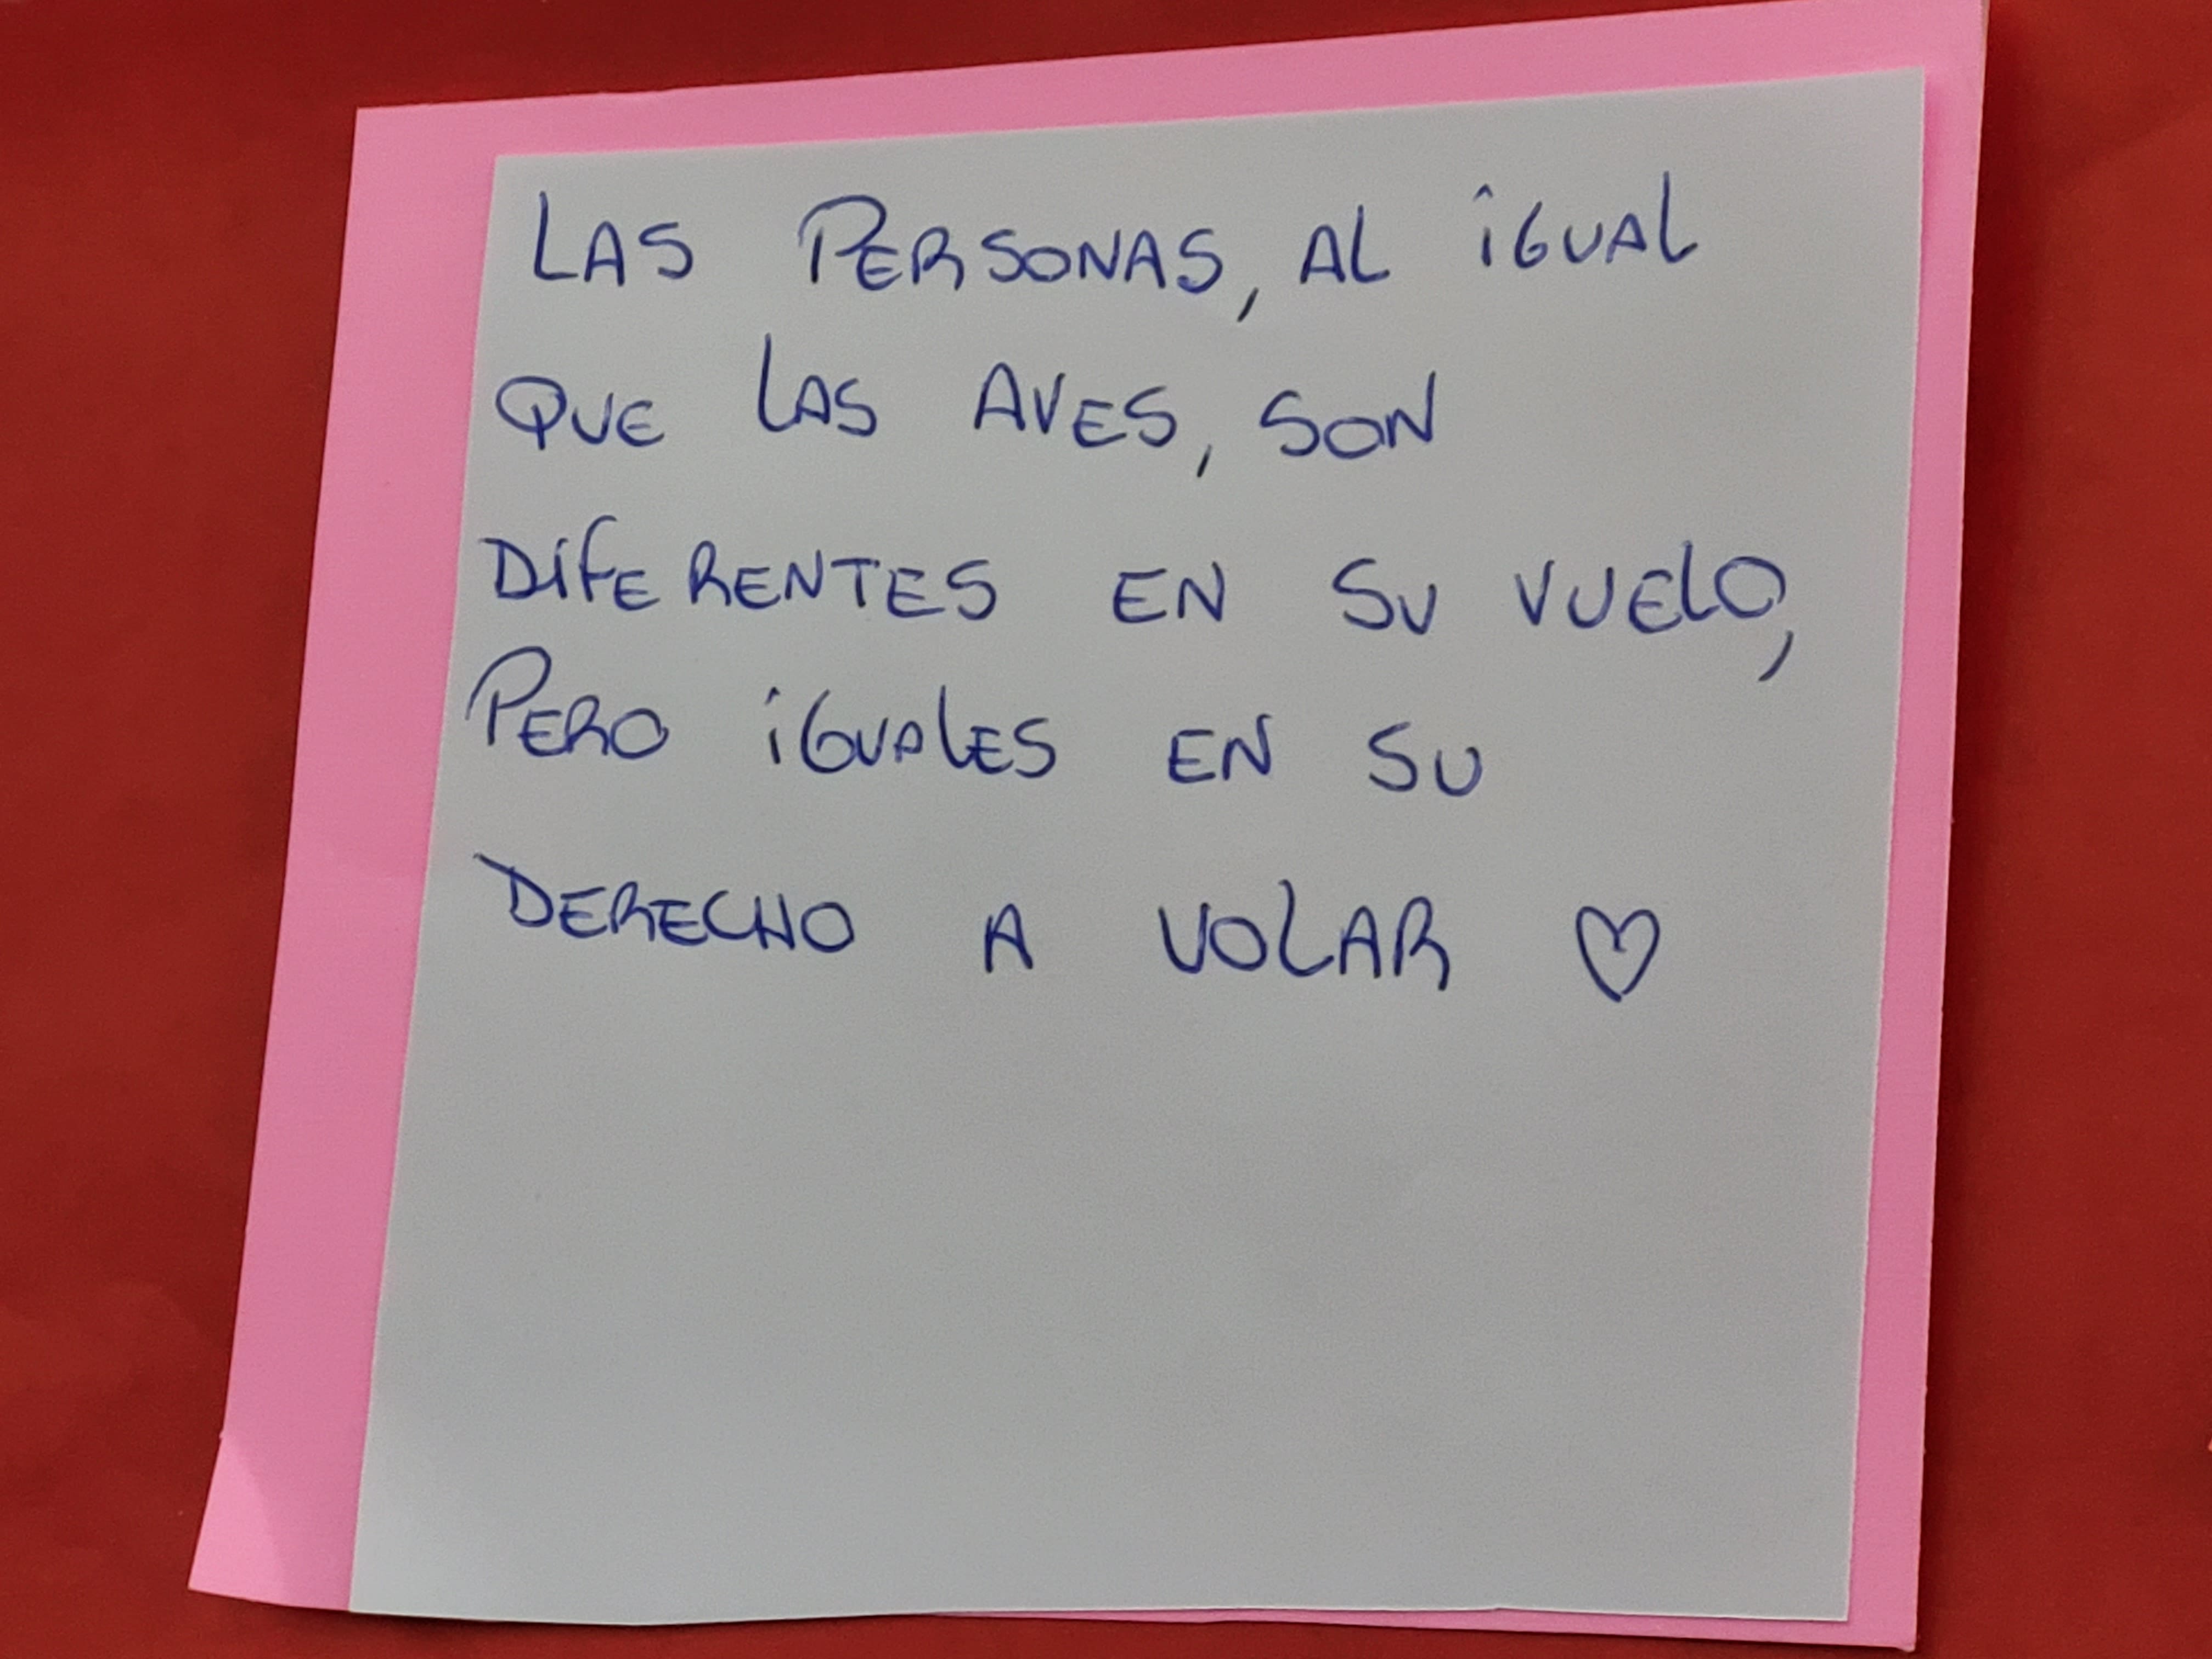 LAS PERSONAS, AL IGUAL
QUE LAS AVES, SON
DIFERENTES EN SU VUELO,
PERO IGUALES EN SU
DERECHO A VOLAR ♡